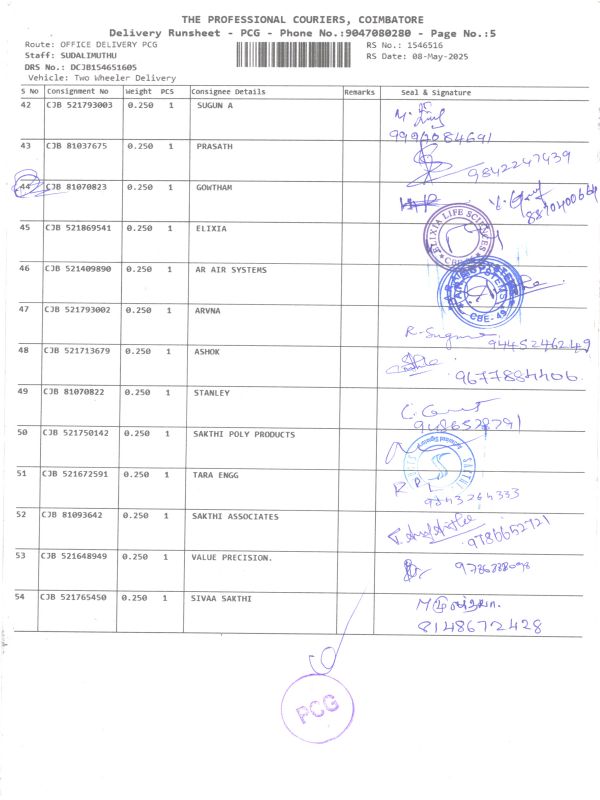 THE PROFESSIONAL COURIERS, COIMBATORE
Delivery Runsheet - PCG - Phone No.:9047080280 - Page No.:5
Route: OFFICE DELIVERY PCG
RS No.: 1546516
Staff: SUDALIMUTHU
RS Date: 08-May-2025
DRS No.: DCJB154651605
Vehicle: Two Wheeler Delivery
S No Consignment No Weight PCS Consignee Details Remarks Seal & Signature
42 CJB 521793003 0.250 1 SUGUN A
43 CJB 81037675 0.250 1 PRASATH
9842247439
44 CJB 81070823 0.250 1 GOWTHAM
45 CJB 521869541 0.250 1 ELIXIA
ELIXIA LIFE SCIENCES
CBE
46 CJB 521409890 0.250 1 AR AIR SYSTEMS
CBE-49
47 CJB 521793002 0.250 1 ARVNA
R. Suguna
9445246249
48 CJB 521713679 0.250 1 ASHOK
9677884406
49 CJB 81070822 0.250 1 STANLEY
50 CJB 521750142 0.250 1 SAKTHI POLY PRODUCTS
51 CJB 521672591 0.250 1 TARA ENGG
9843264333
52 CJB 81093642 0.250 1 SAKTHI ASSOCIATES
9786652721
53 CJB 521648949 0.250 1 VALUE PRECISION.
54 CJB 521765450 0.250 1 SIVAA SAKTHI
8148672428
PCG